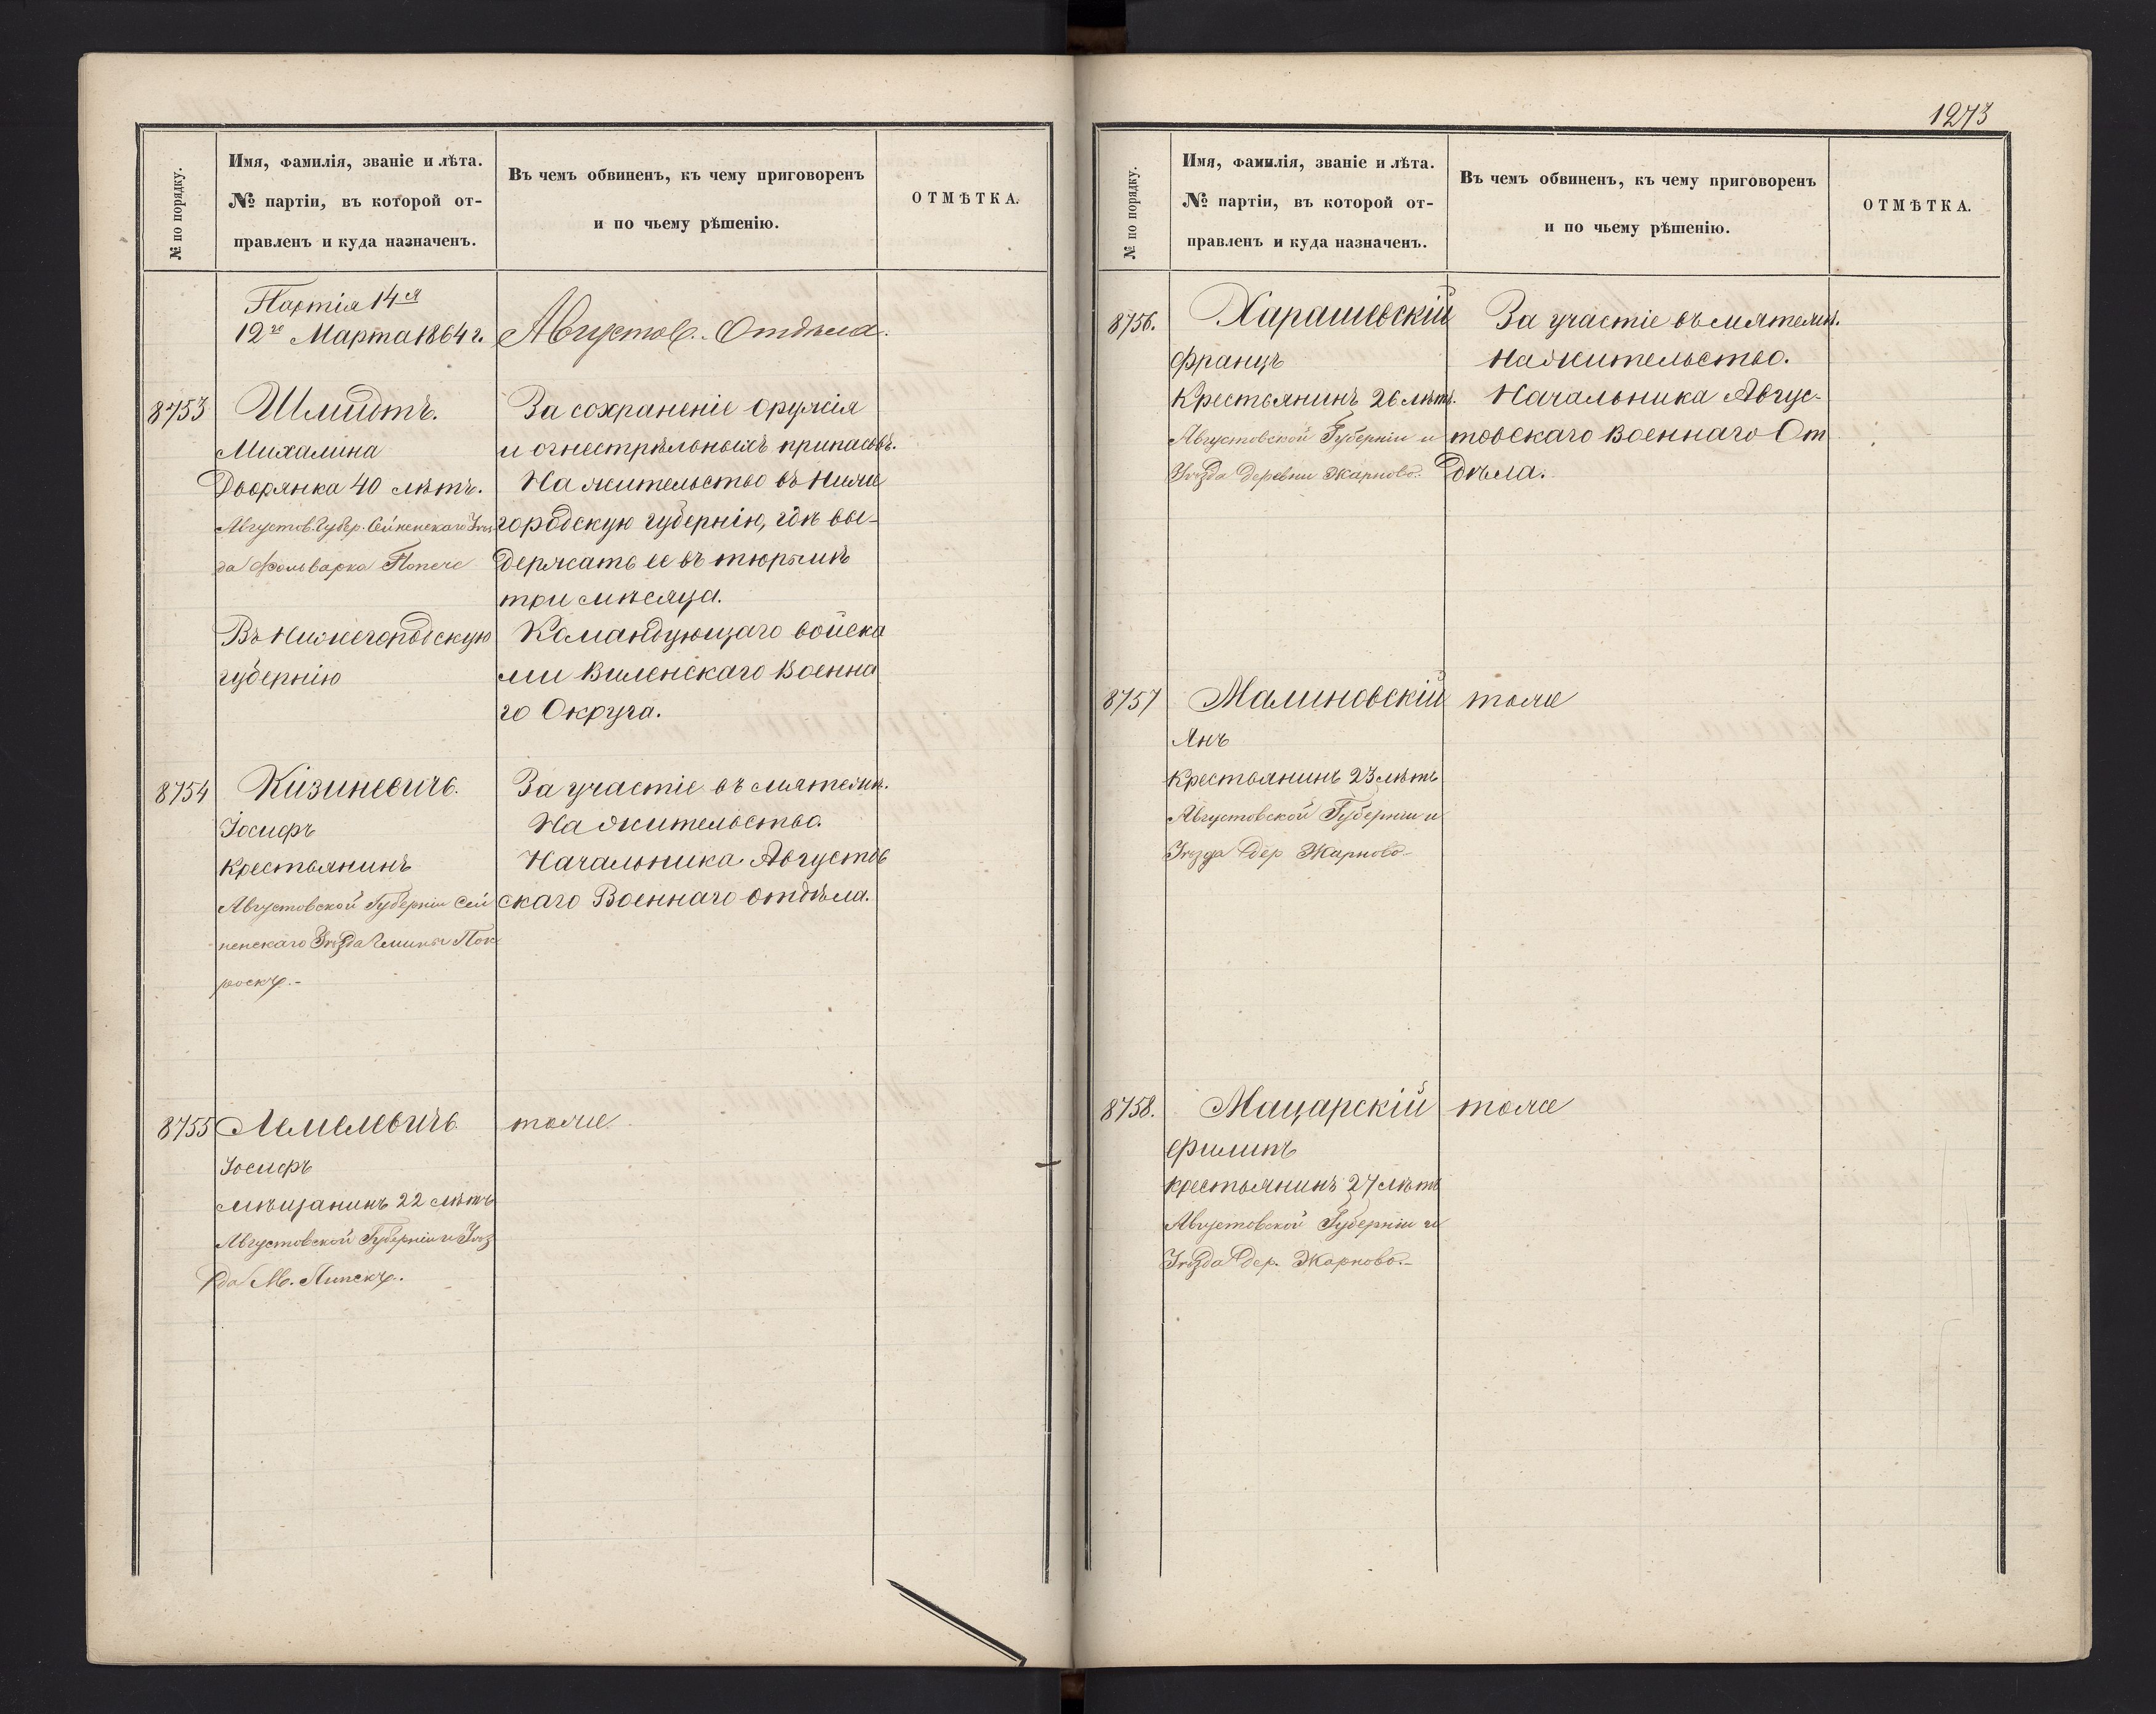 № по порядку.
Имя, фамилія, званіе и лѣта.
№ партіи, въ которой от-
правленъ и куда назначенъ.
Въ чемъ обвиненъ, къ чему приговоренъ
и по чьему рѣшенію.
ОТМѢТКА.
Партія 14я
12го Марта 1864 г.
Августов. Отдѣла.
8753
Шмидтъ.
Михалина
Дворянка 40 лѣтъ.
Августов. Губер. Сейненскаго Уѣз-
да Фольварка
Въ Нижегородскую
губернію
За сохраненіе оружія
и огнестрѣльныхъ припасовъ.
На жительство въ Ниже
городскую губернію, гдѣ вы-
держать ее въ тюрьмѣ
три мѣсяца.
Командующаго войска
ми Виленскаго Военна
го Округа.
8754
Кизиневичъ.
Іосифъ
Крестьянинъ
Августовской Губерніи Сей
ненскаго Уѣзда Гмины
За участіе въ мятежѣ.
На жительство.
Начальника Августов
скаго Военнаго отдѣла.
8755
Лемелевичъ
Іосифъ
мѣщанинъ 22 лѣтъ
Августовской Губерніи и Уѣз
да М. Липскъ.
тоже
1273
№ по порядку.
Имя, фамилія, званіе и лѣта.
№ партіи, въ которой от-
правленъ и куда назначенъ.
Въ чемъ обвиненъ, къ чему приговоренъ
и по чьему рѣшенію.
ОТМѢТКА.
8756.
Харашевскій
Францъ
Крестьянинъ 26 лѣтъ.
Августовской Губерніи и
Уѣзда Деревни Жарново.
За участіе въ мятежѣ.
На жительство.
Начальника Авгус-
товскаго Военнаго От
дѣла.
8757
Малиновскій
Янъ
Крестьянинъ 23 лѣтъ
Августовской Губерніи и
Уѣзда дер Жарново-
тоже
8758.
Мацарскій
Филипъ
крестьянинъ 27 лѣтъ
Августовской Губерніи и
Уѣзда дер. Жарново.-
тоже